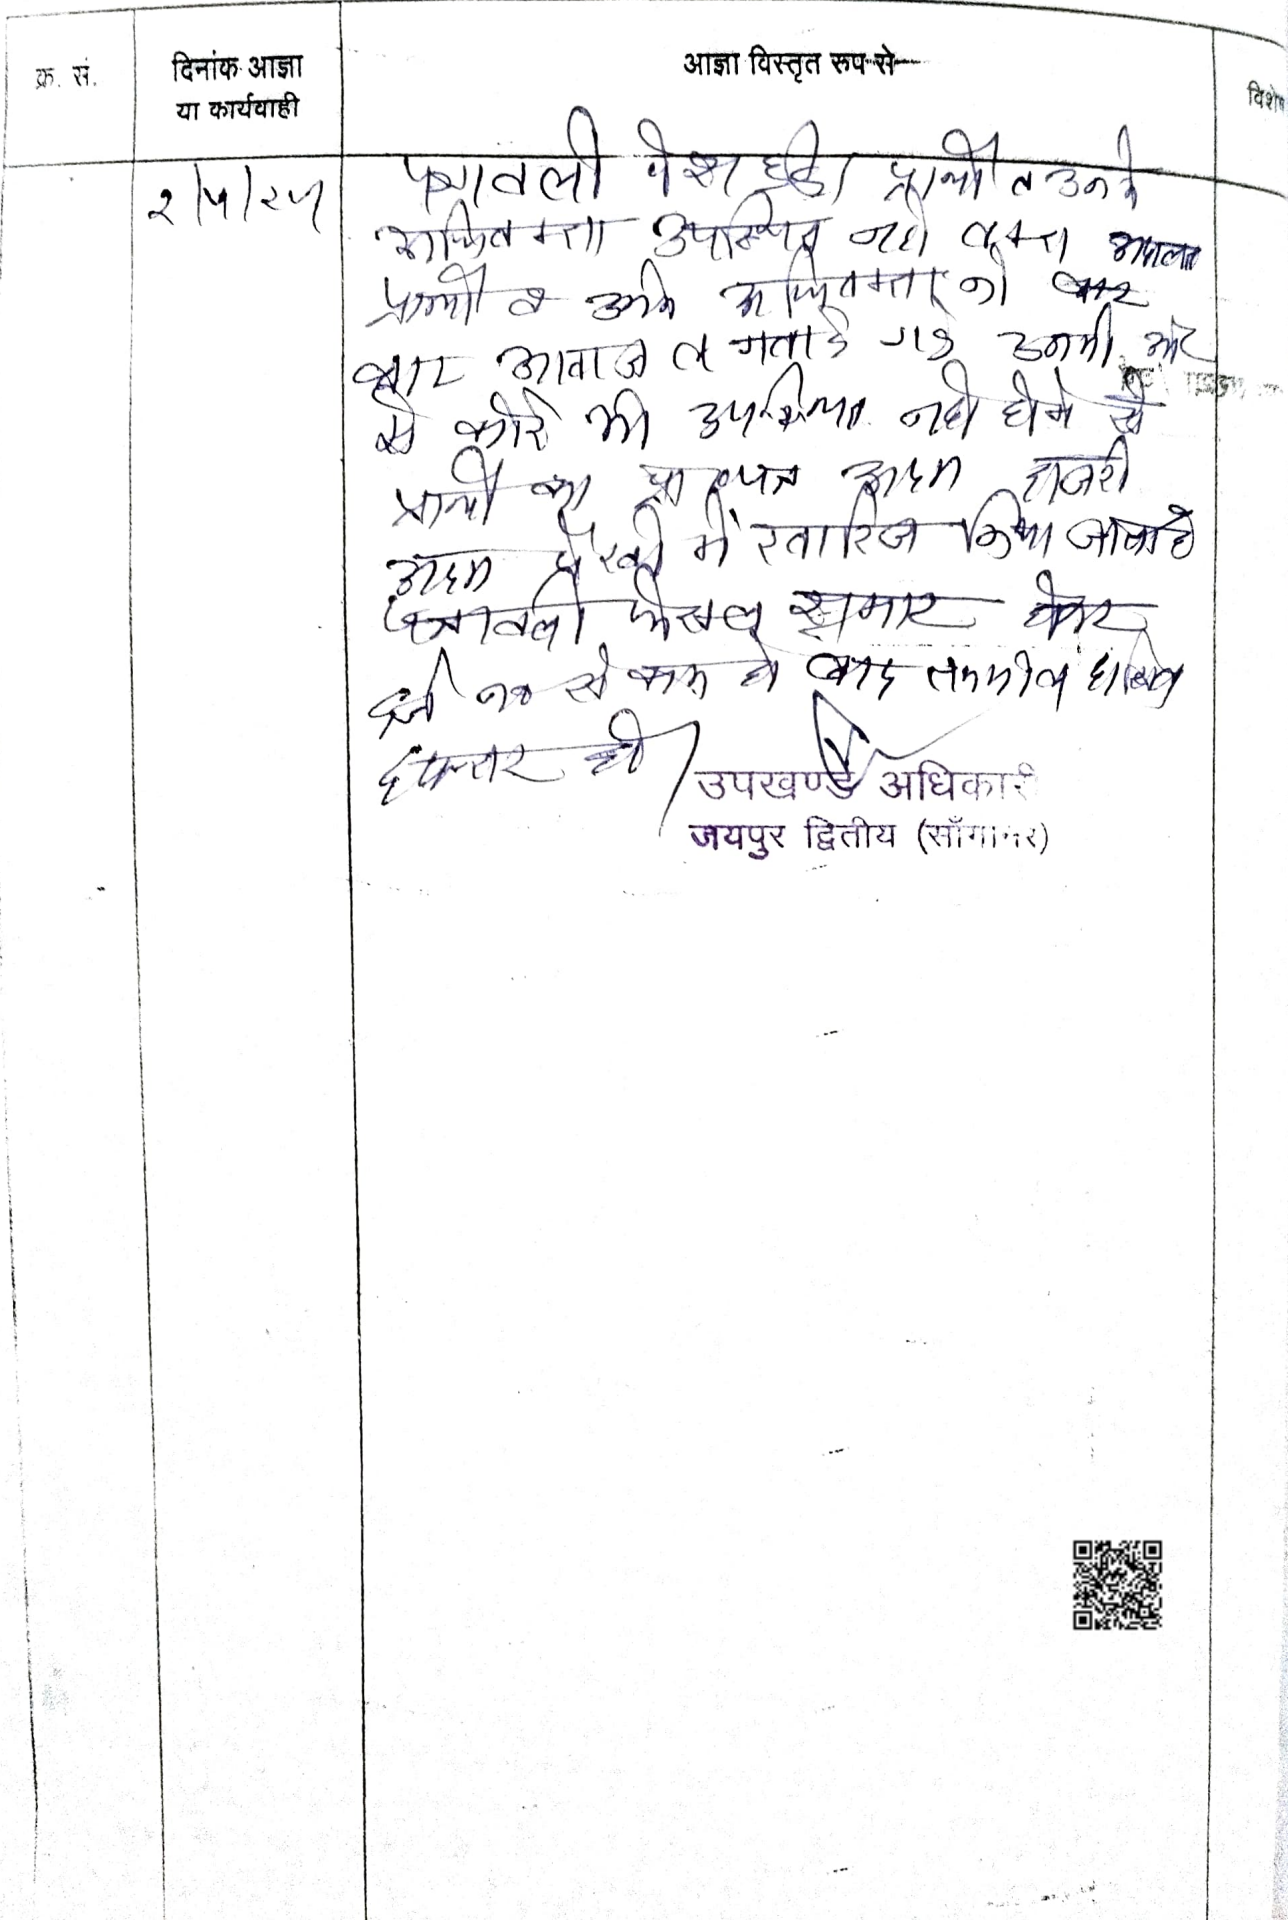 क्र. सं.
दिनांक आज्ञा
या कार्यवाही
आज्ञा विस्तृत रूप से
विशेष
२/५/२५
पत्रावली पेश हुई। प्रार्थी व उनके
अधिवक्ता उपस्थित नही वक्त
प्रार्थी व उनके अधिवक्ता को बार
बार आवाज लगवाई गई उनकी ओर
से कोई भी उपस्थित नही होने से
प्रार्थी का प्रा०पत्र अदम हाजरी
अदम पैरवी में खारिज किया जाता है
पत्रावली फैसल शुमार होकर
दर्ज न० से कम हो बाद तकमील दाखिल
दफ्तर हो
उपखण्ड अधिकारी
जयपुर द्वितीय (साँगानेर)